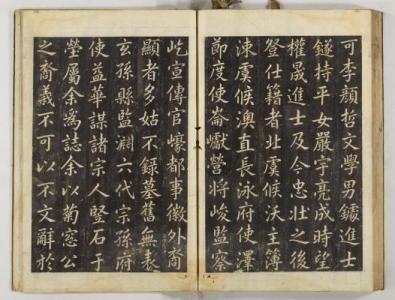 可李顔哲文學男進士
持平女嚴宇亮成時望
權晟進士及今忠壯之後
登仕籍者北虞候沃主簿
涑虞候澳直長泳府使澤
節度使崙巘營將峻監察
屹宣傳官都事徽外裔
顯者多姑不錄墓舊無表
玄孫縣監澗六代宗孫府
使益華謀諸宗人竪石于
塋屬余爲誌余以菊窓公
之裔義不可以不文辭於